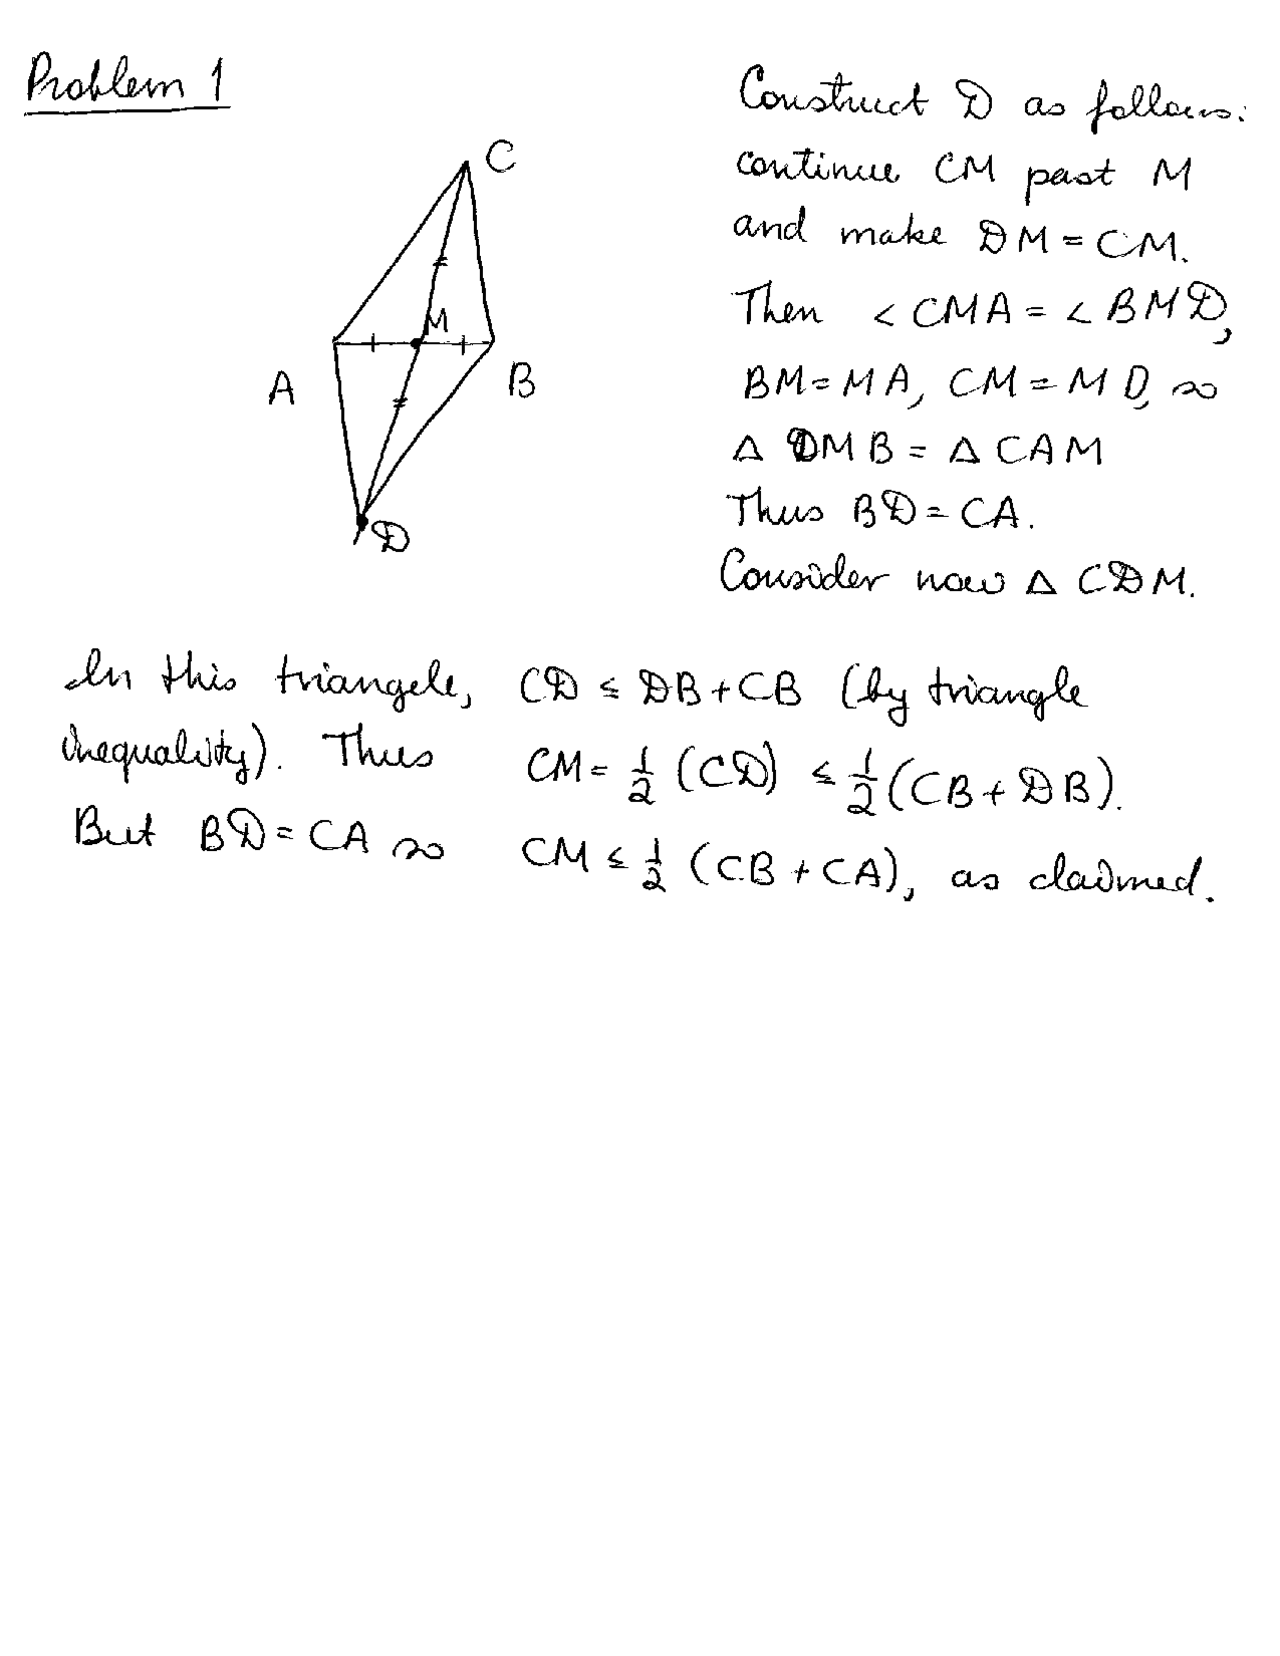 Problem 1
C
M
A
B
D
Construct D as follows:
continue CM past M
and make DM = CM.
Then < CMA = < BMD,
BM = MA, CM = MD, so
Δ DMB = Δ CAM
Thus BD = CA.
Consider now Δ CDM.
In this triangele, CD ≤ DB + CB (by triangle
inequality). Thus CM = 1/2 (CD) ≤ 1/2 (CB + DB).
But BD = CA so CM ≤ 1/2 (CB + CA), as claimed.